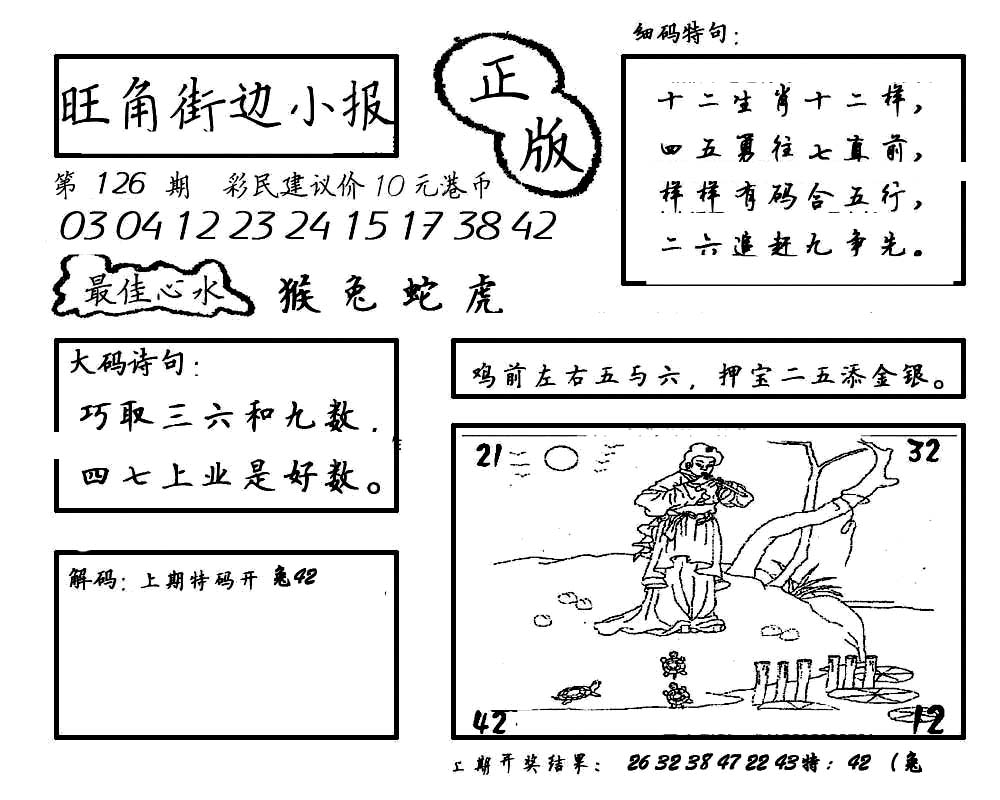 细码特句：
旺角街边小报
正版
十二生肖十二样，
四五勇往七直前，
样样有码合五行，
二六追赶九争先。
第 126 期 彩民建议价10元港币
03 04 12 23 24 15 17 38 42
最佳心水 猴 兔 蛇 虎
大码诗句：
巧取三六和九数，
四七上业是好数。
鸡前左右五与六，押宝二五添金银。
21
32
42
12
解码：上期特码开 兔42
上期开奖结果： 26 32 38 47 22 43特：42 （兔